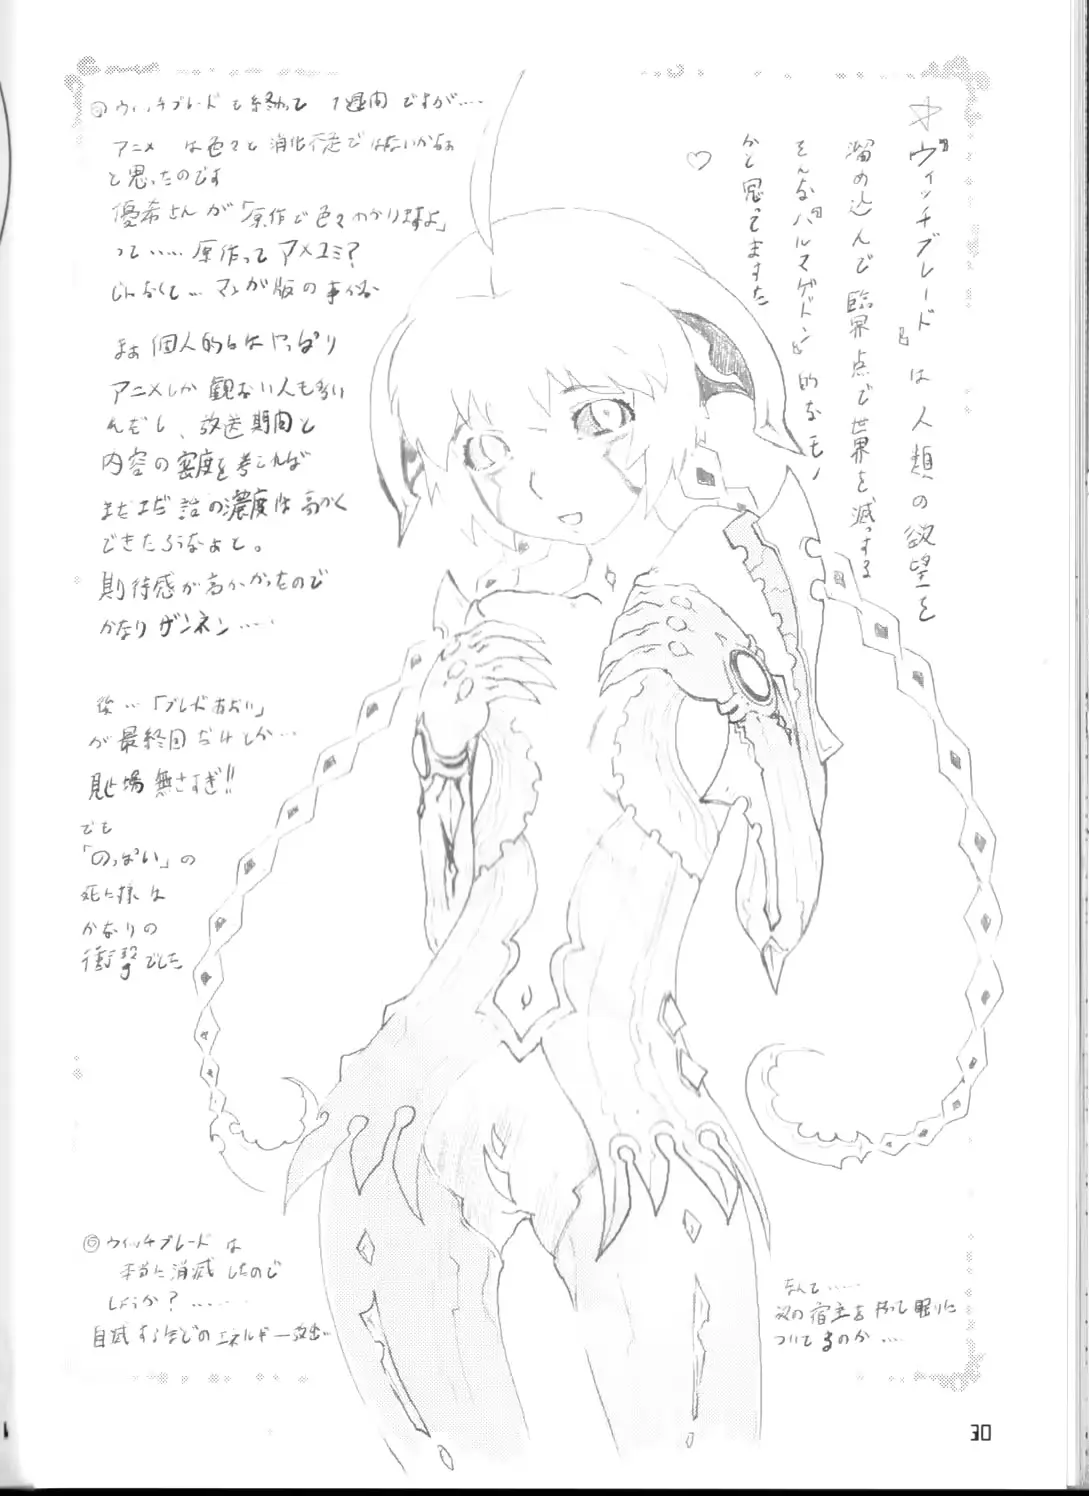 ☆『ヴィッチブレード』は人類の欲望を
溜め込んで臨界点で世界を滅っする
そんな『ハルマゲドン』的なモノ
かと思ってますた
♡
◎ウィッチブレードも終わって 1週間ですが……
アニメ は色々と消化不足ではないかなぁ
と思ったのです
優希さんが「原作で色々わかりますよ」
って……原作ってアメコミ?
じゃなくて…マンガ版の事かな
まぁ個人的にはやっぱり
アニメしか観ない人も多い
んだし、放送期間と
内容の密度を考えれば
まだまだ話の濃度は高かく
できたろうなぁと。
期待感が高かかったので
かなりザンネン……
後…「ブレードあおい」
が最終回だけしか…
見せ場無さすぎ!!
でも
「のっぽい」の
死に様は
かなりの
衝撃でした
◎ウィッチブレードは
本当に消滅したので
しょうか?………
自滅するほどのエネルギー放出…
なんて……
次の宿主を待って眠りに
ついてるのか……
30